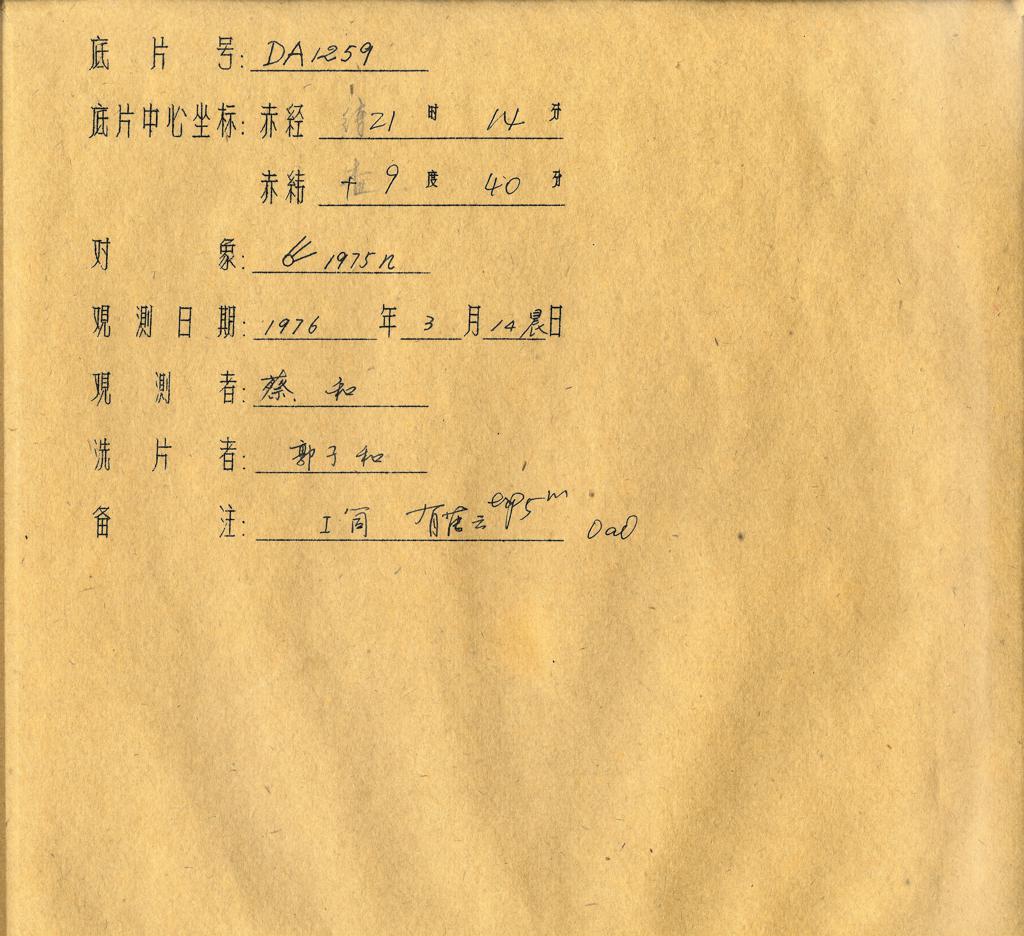 底片号: DA1259
底片中心坐标: 赤经 21 时 14 分
赤纬 +9 度 40 分
对象: 1975n
观测日期: 1976 年 3 月 14 晨日
观测者: 蔡、和
洗片者: 郭子和
备注: I 筒 有 云 exp5m Oa0